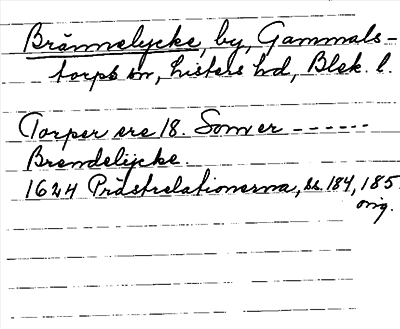 Brännelycke, by, Gammals-
torps sn, Listers hd, Blek. l.
Torper ere 18. Som er ------
Brendelycke.
1624 Prästrelationerna, ss. 184, 185.
orig.